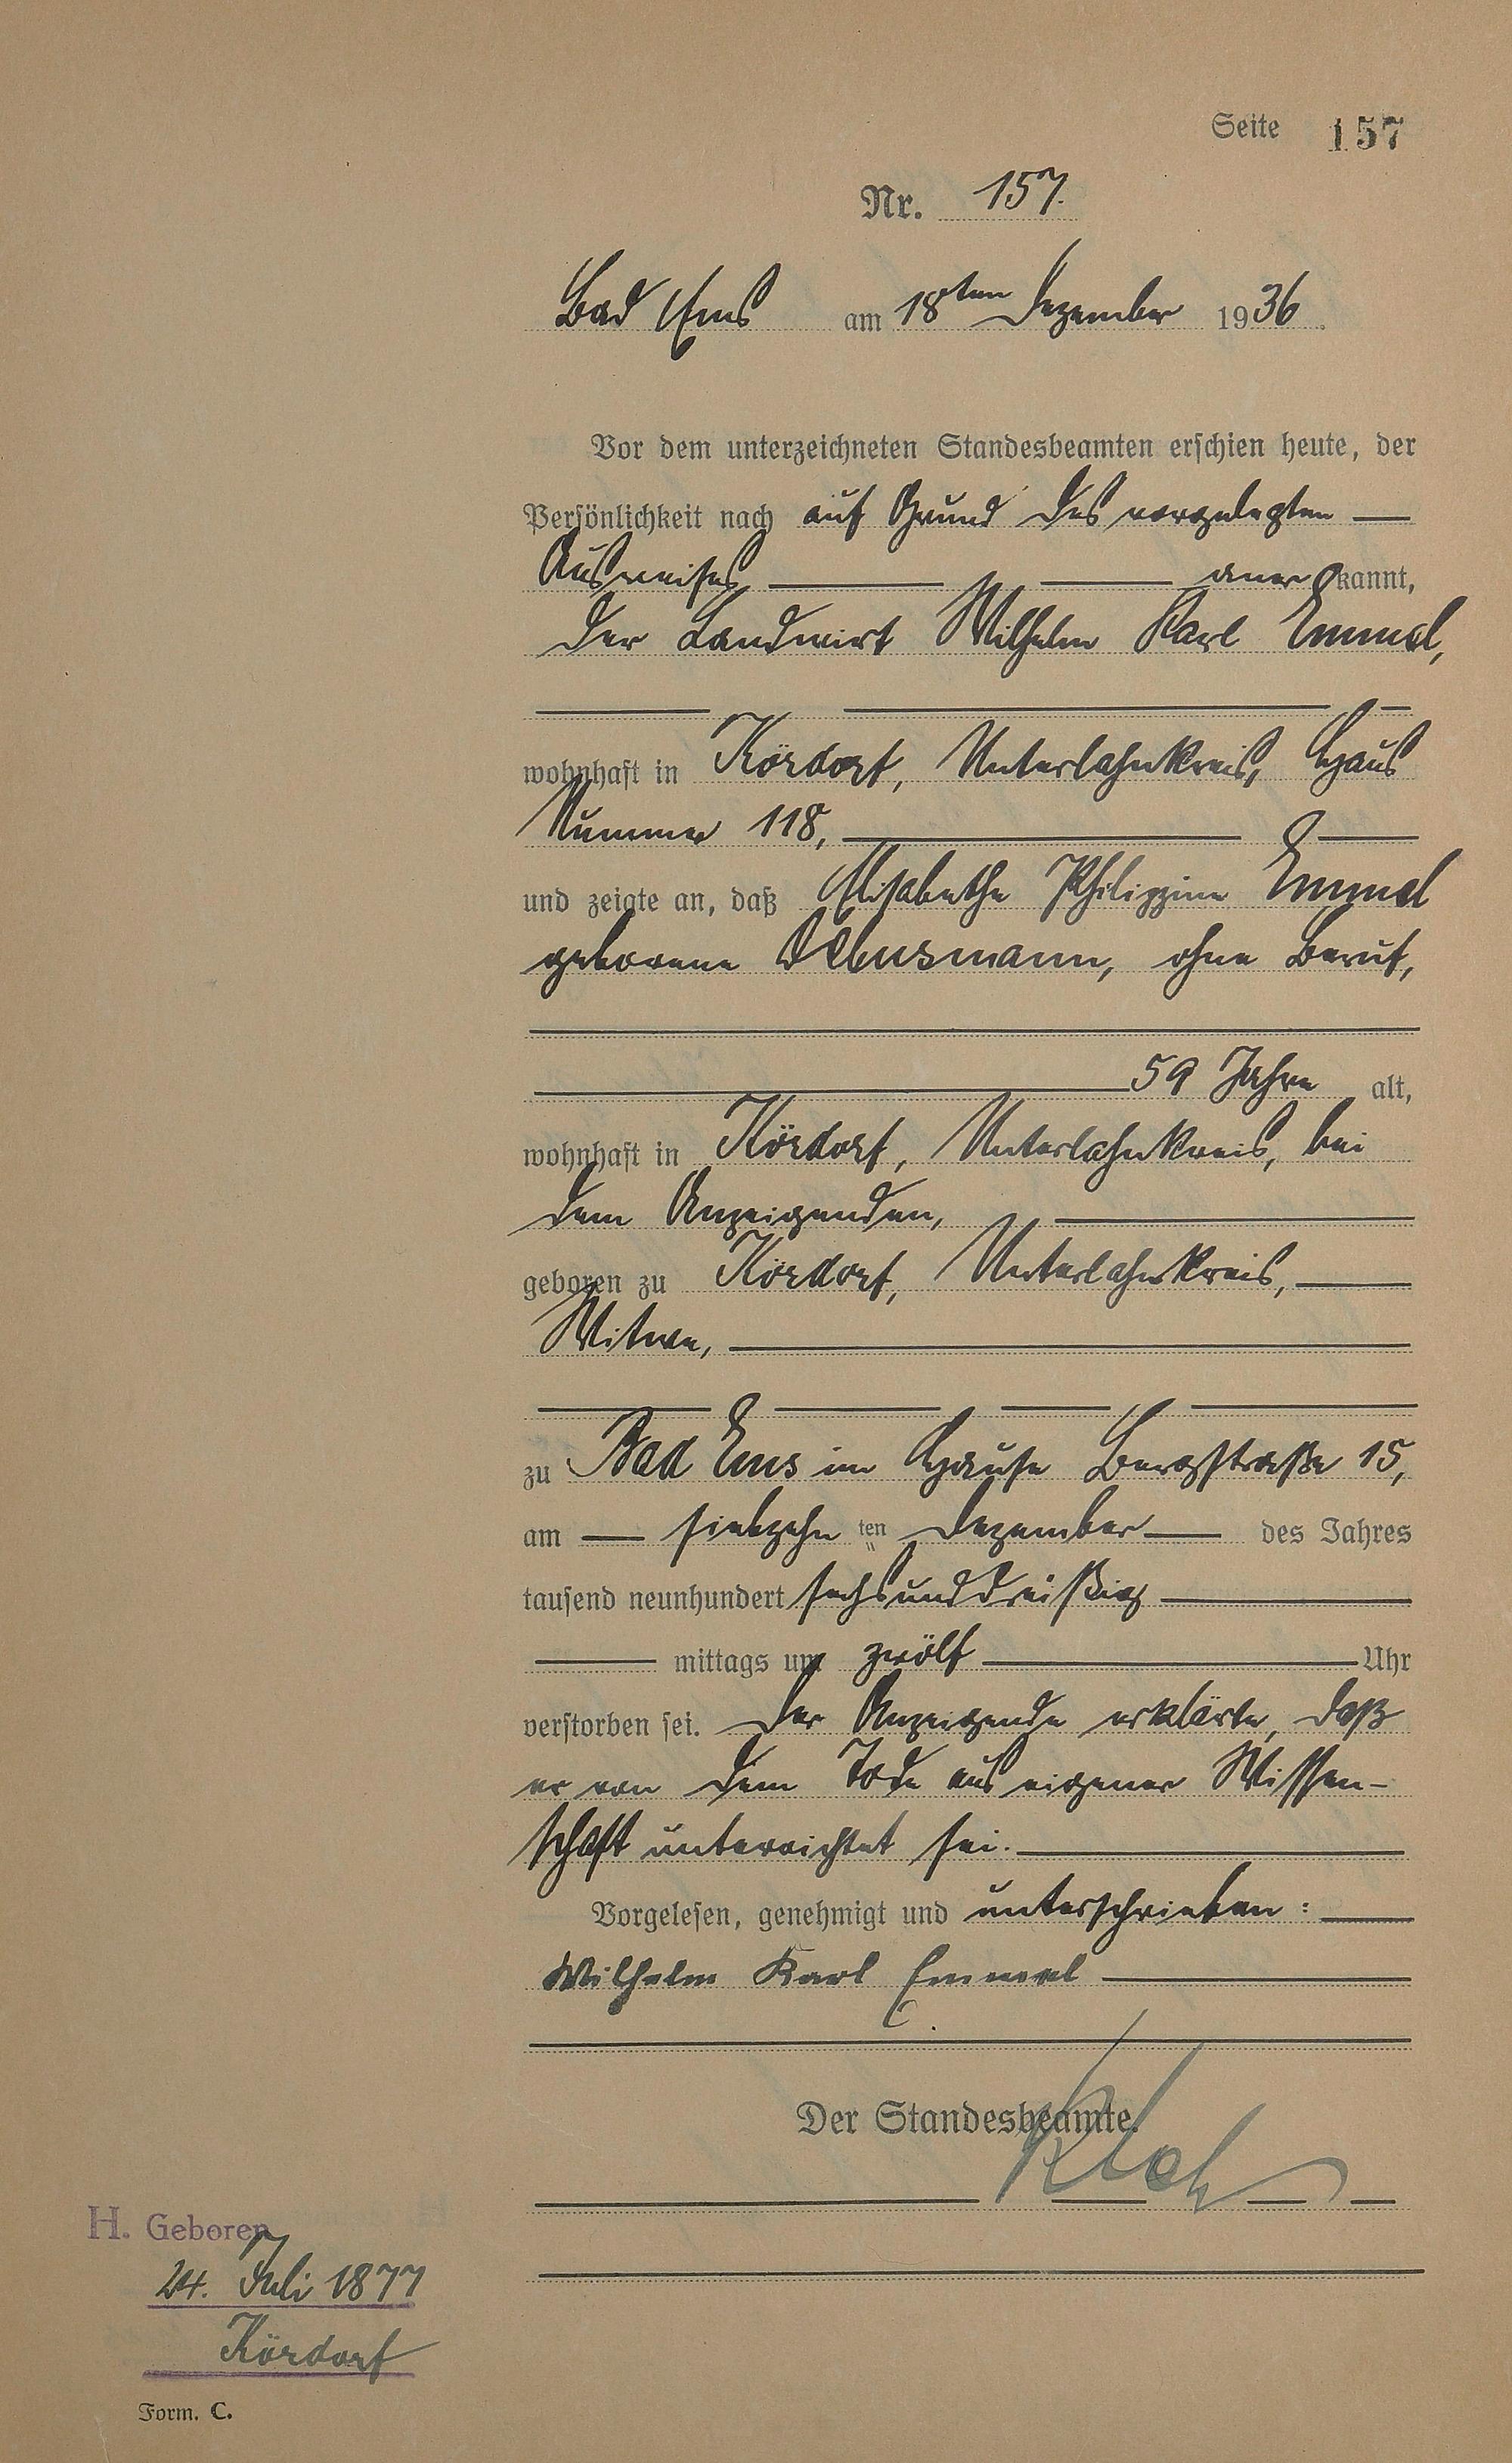 Seite 157
Nr. 157.
Bad Ems am 18ten Dezember 1936.
Vor dem unterzeichneten Standesbeamten erschien heute, der
Persönlichkeit nach auf Grund des vorgelegten
Ausweises anerkannt,
der Landwirt Wilhelm Karl Emmel,
wohnhaft in Kördorf, Unterlahnkreis, Haus
Nummer 118,
und zeigte an, daß Elisabethe Philippine Emmel
geborene Debusmann, ohne Beruf,
59 Jahre alt,
wohnhaft in Kördorf, Unterlahnkreis, bei
dem Anzeigenden,
geboren zu Kördorf, Unterlahnkreis,
Witwe,
zu Bad Ems im Hause Bergstraße 15,
am siebzehnten Dezember des Jahres
tausend neunhundert sechsunddreißig
mittags um zwölf Uhr
verstorben sei. Der Anzeigende erklärte, daß
er von dem Tode aus eigener Wissen-
schaft unterrichtet sei.
Vorgelesen, genehmigt und unterschrieben:
Wilhelm Karl Emmel
Der Standesbeamte.
H. Geboren
24. Juli 1877
Kördorf
Form. C.